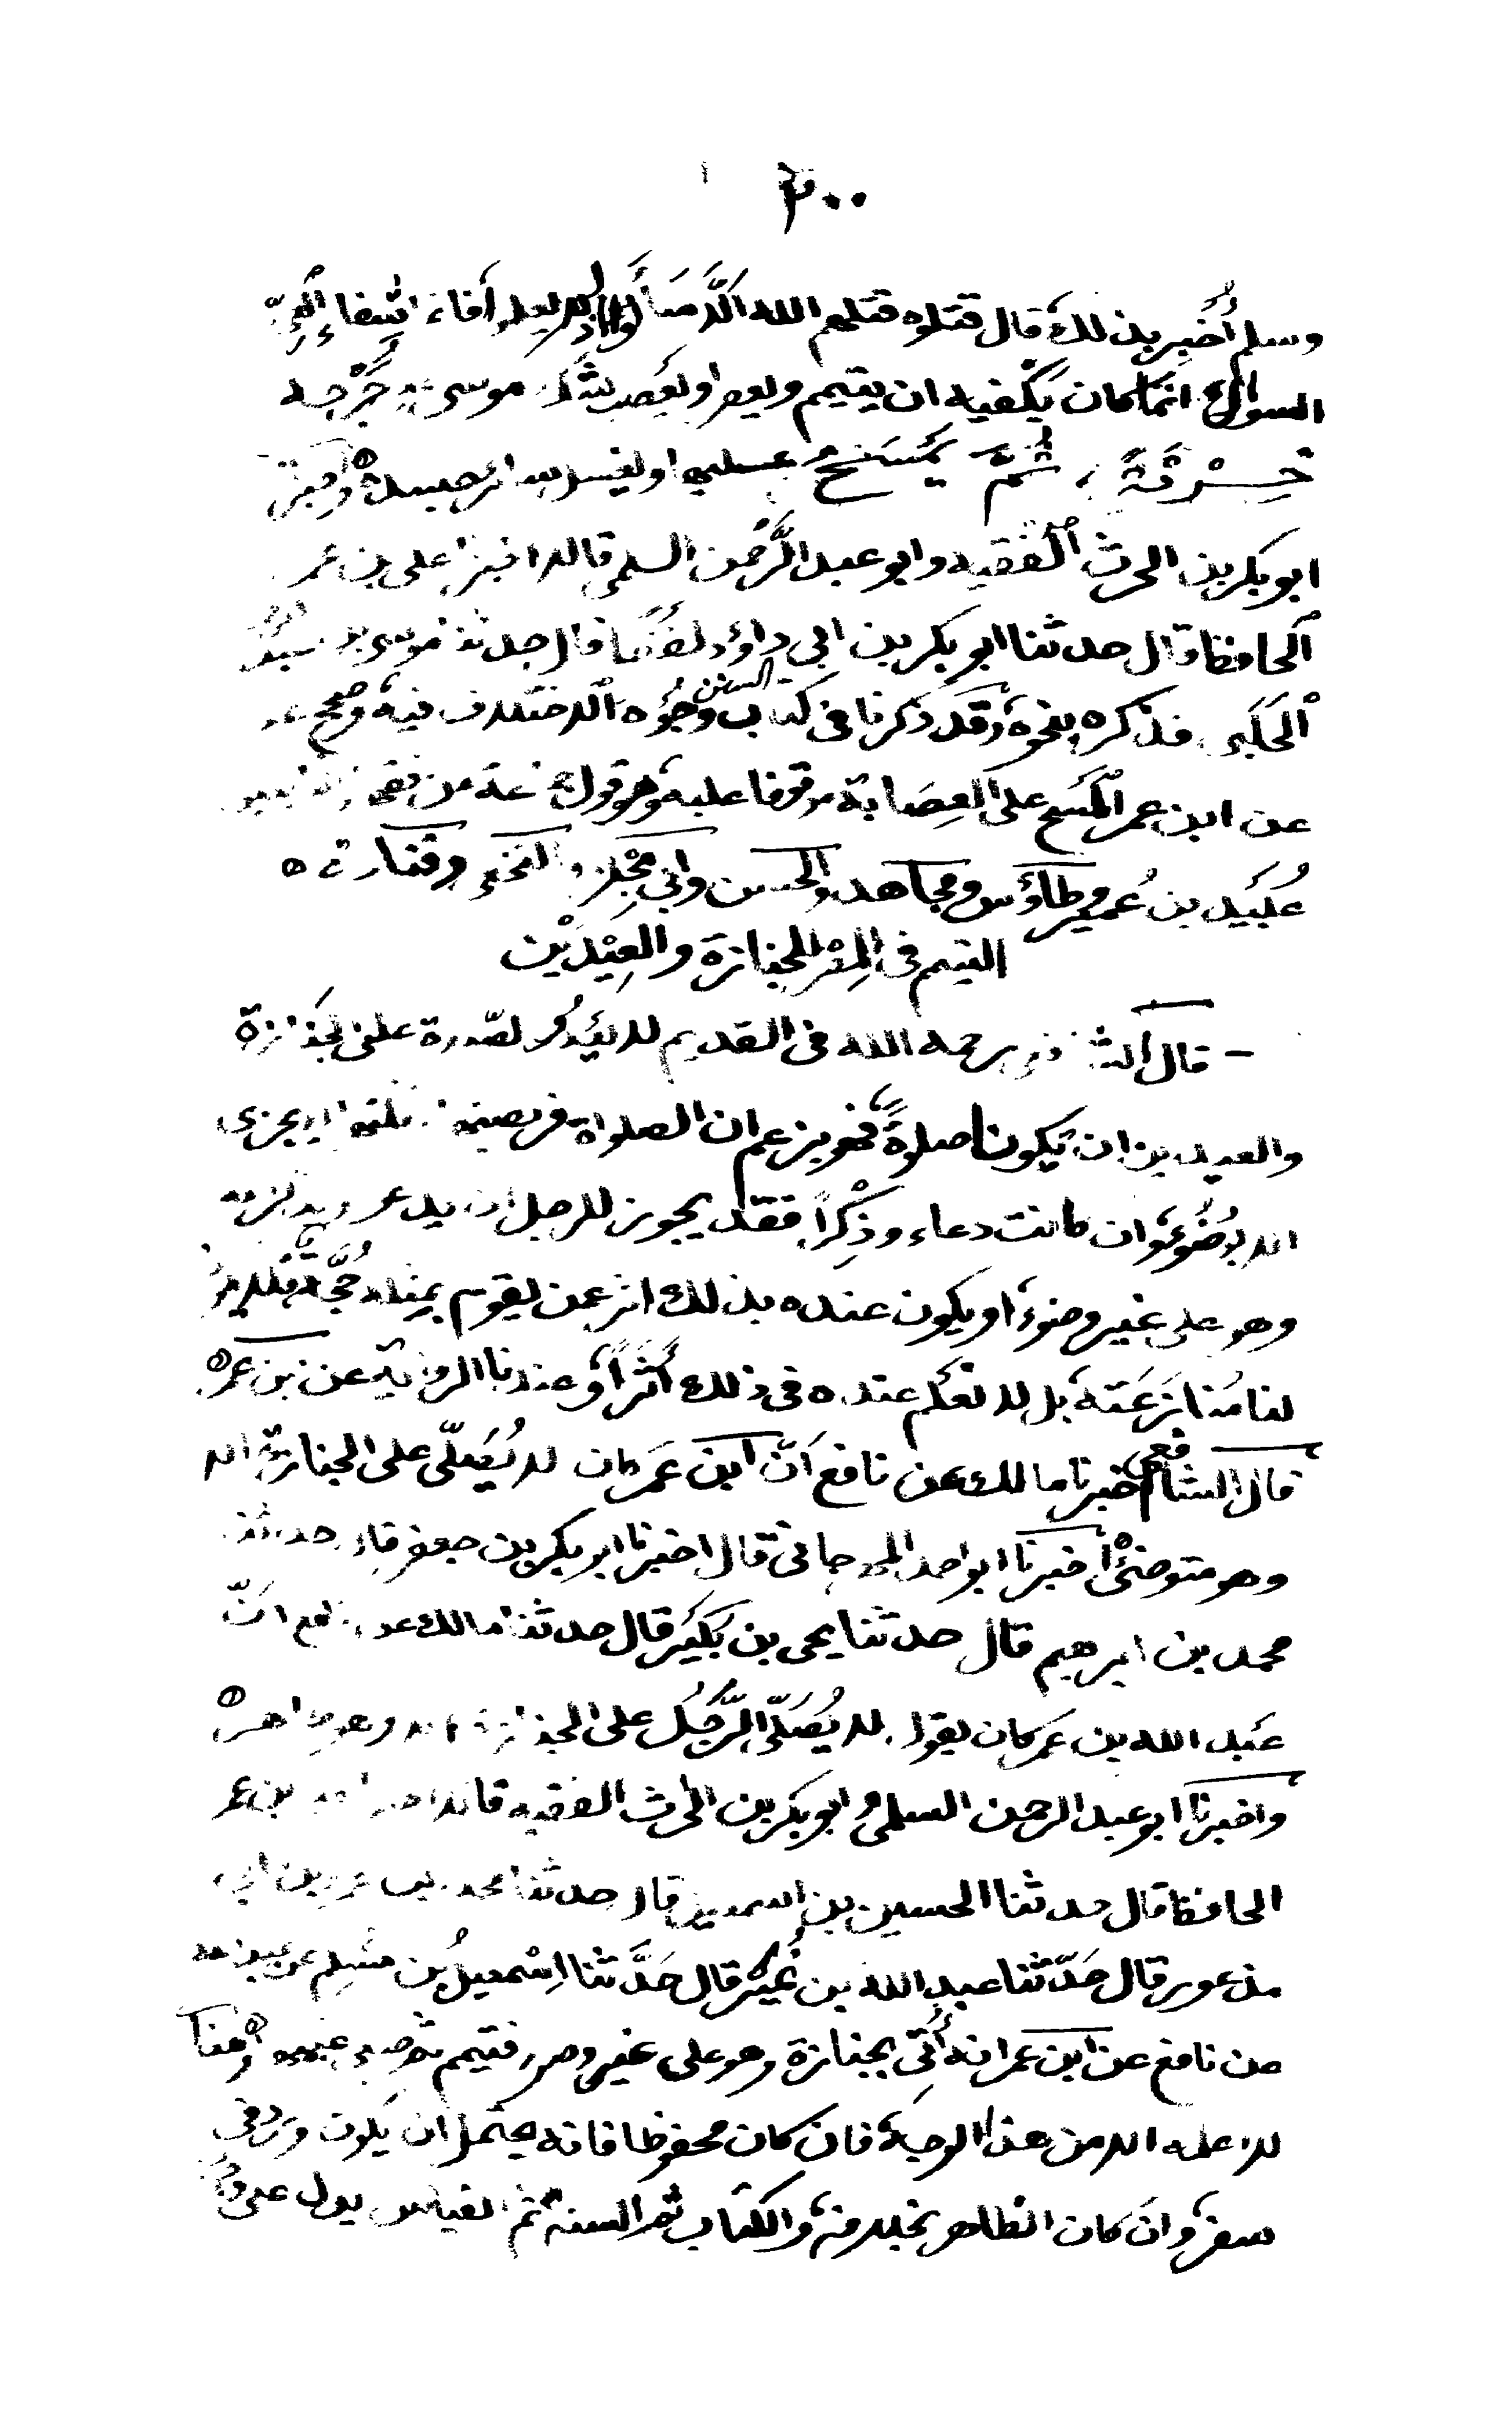 ٣٠٠
وسلم أُخبر بذلك قال قتلوه قتلهم الله ألّا سألوا اذ لم يعلموا فانما شفاء العي
السؤال انما كان يكفيه ان يتيمم ويعصر او يعصب شك موسى على جرحه
خِرْقَةً ثُمَّ يَمْسَحُ عليها ويغسل سائر جسده واخبرنا
ابو بكر بن الحرث الفقيه وابو عبد الرحمن السلمي قالا اخبرنا على بن عمر
الحافظ قال حدثنا ابو بكر بن ابى داؤد لفظا قال حدثنا موسى بن
الحلبي فذكره بنحوه وقد ذكرنا في كتاب السنن وجوه الاختلاف فيه وصح عن
عن ابن عمر المسح على العصابة موقوفا عليه وهو قول جماعة من فقهاء التابعين
عُبَيد بن عُمير وطاؤس ومجاهد والحسن وابى مجلز والنخعي وقتادة ه
التيمم في المصر للجنازة والعِيْدَيْن
قال الشافعي رحمه الله في القديم لا الصلاة على الجنازة
والعيدين ان تكونا صلوةً فهو يزعم ان الصلواة فريضة لا يجزى
الا بوضوء وان كانت دعاء وذِكْراً فقد يجوز للرجل ان يدعو ويذكر
وهو على غير وضوء او يكون عنده بذلك اثر عمن يقوم بمثله حُجَّة فلا يجوز
لنا مُنَازَعَته بل لا نعلم عنده في ذلك أثَراً وعندنا الرواية عن بن عمر ه
قال الشافعي اخبرنا مالك عن نافع أنّ ابن عَمر كان لا يُصَلّى على الجنازة الا
وهو متوضئ أخبرنا ابو احمد المهرجاني قال اخبرنا ابو بكر بن جعفر قال حدثنا
محمد بن ابرهيم قال حدثنا يحى بن بُكَيْر قال حدثنا مالك عن نافع انّ
عَبد الله بن عمر كان يقول لا يُصَلّى الرَّجُلُ على الجنازة الا وهو طاهر ه
واخبرنا ابو عبد الرحمن السلمي وابو بكر بن الحرث الفقيه قالا اخبرنا على بن عمر
الحافظ قال حدثنا الحسين بن اسمعيل قال حدثنا محمد بن عمرو بن ابى
مذعور قال حَدّثنا عبد الله بن نُمَيْر قال حَدَّثنا اِسْمعيلُ بُن مُسْلِم عن عبيد الله
عن نافع عن ابن عمر انه أُتى بجنازة وهو على غير وضوء فتيمم ثم صلى عليها وهذا
لا اعلمه الا من هذا الوجه فان كان محفوظا فانه يحتمل ان يكون ورد في
سفر وان كان الظاهر بخلافه والكتاب ثم السنة ثم القياس يدل على